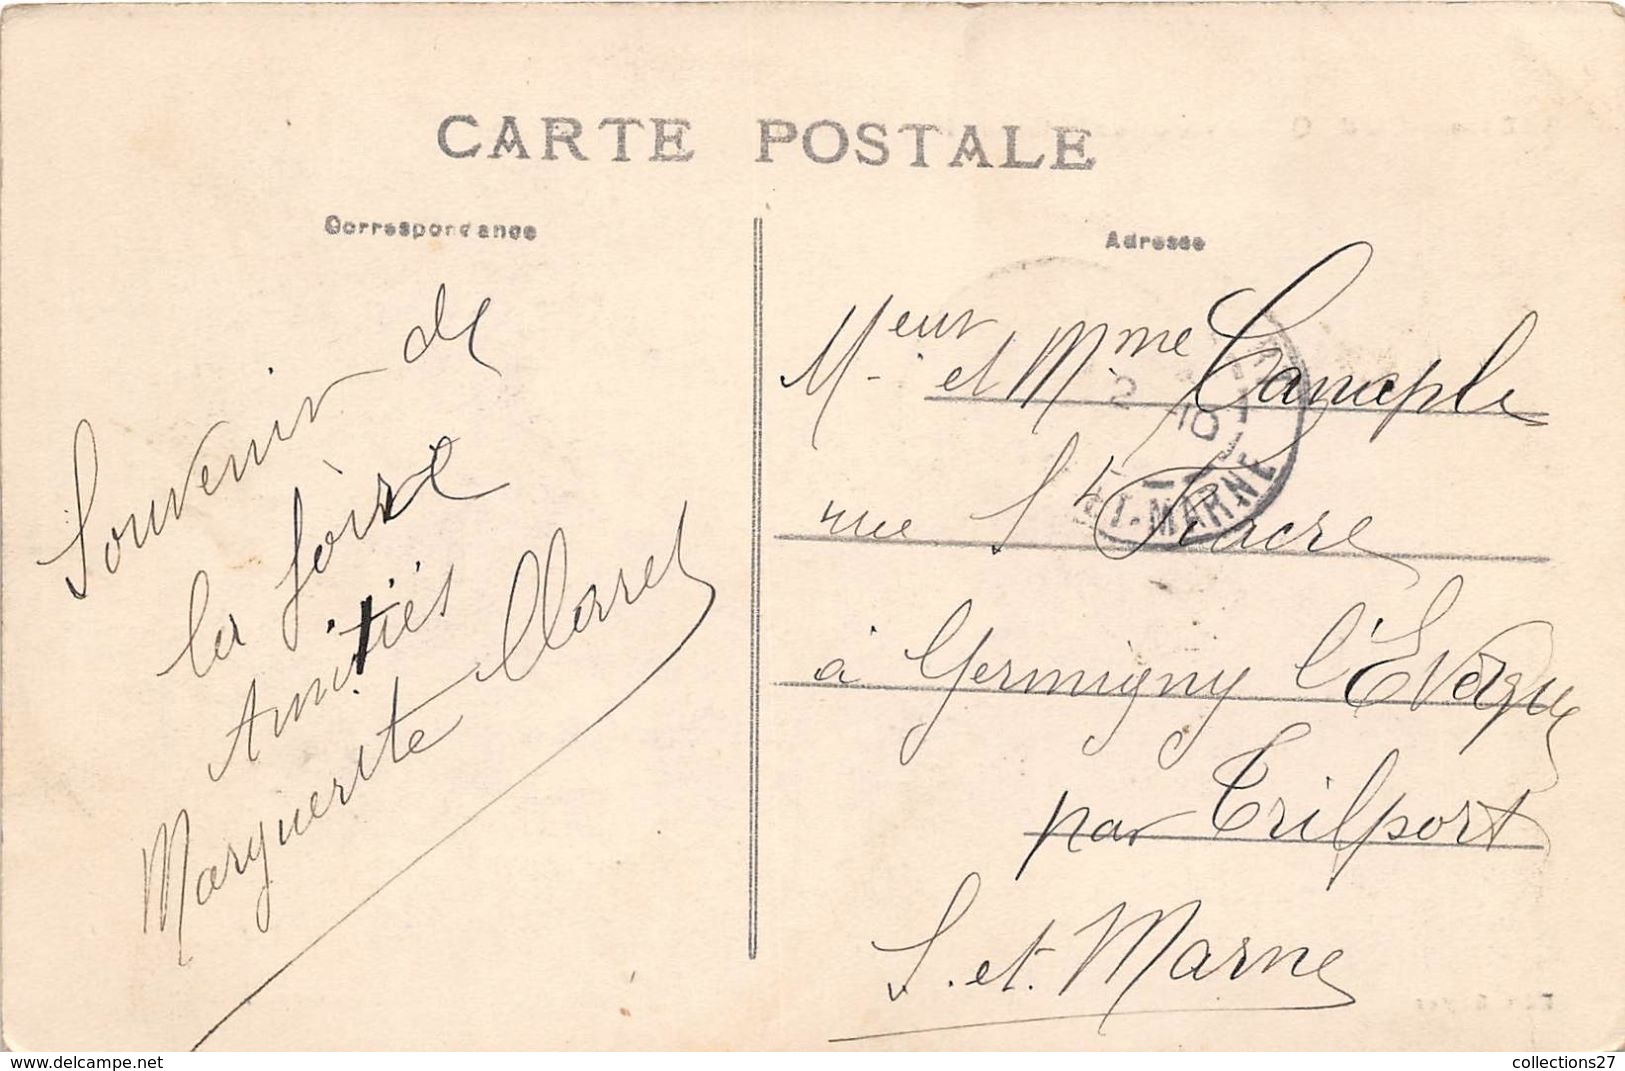 CARTE POSTALE
Correspondance
Souvenir de
la foire
Amitiés
Marguerite Claret
Adresse
Meur et Mme Canaple
rue St Fiacre
à Germigny l'Evêque
par Trilport
S. et. Marne
2
10
ET-MARNE
delcampe.net
collections27